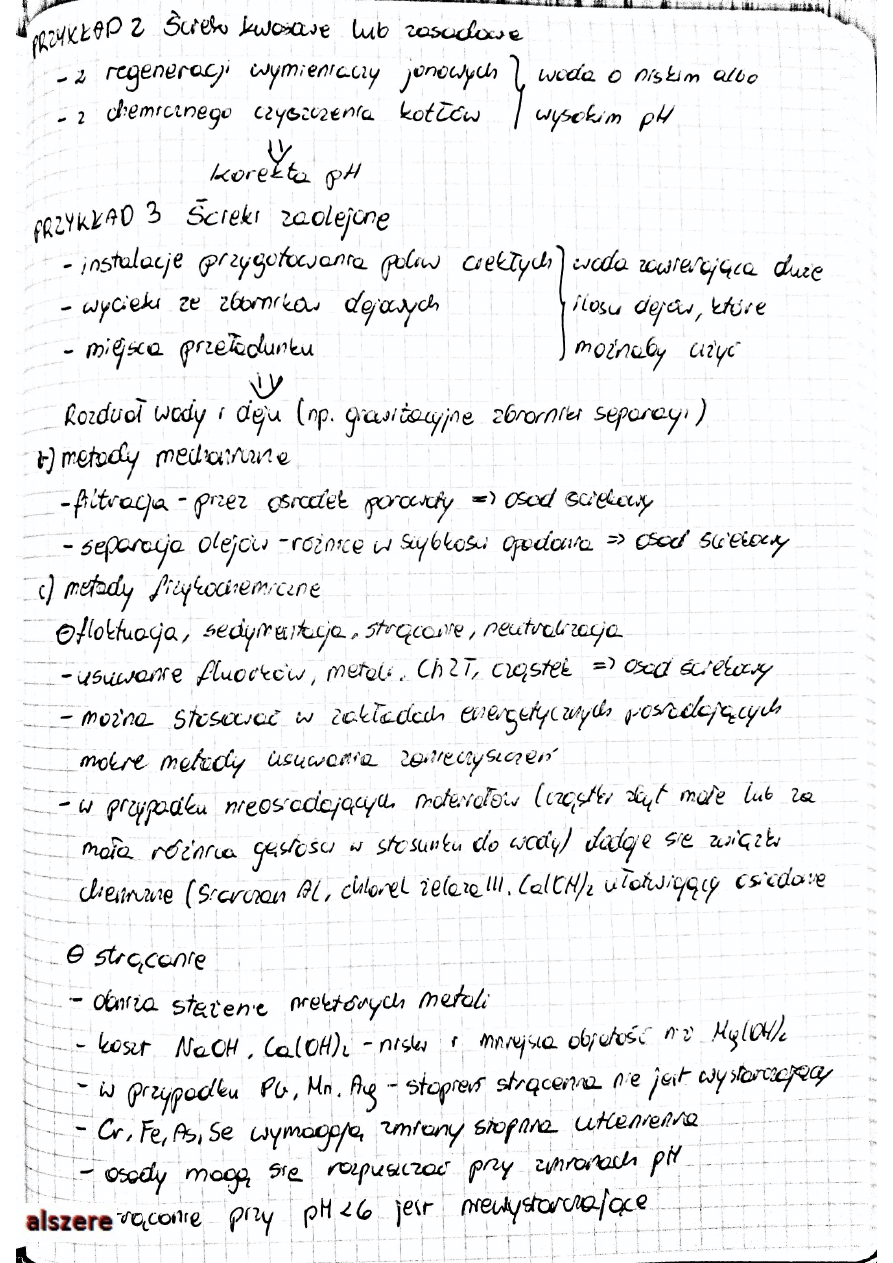 PRZYKŁAD 2 Ścieki kwasowe lub zasadowe
- z regeneracji wymieniaczy jonowych } woda o niskim albo
- z chemicznego czyszczenia kotłów } wysokim pH
⇓
Korekta pH
PRZYKŁAD 3 Ścieki zaolejone
- instalacje przygotowania paliw ciekłych } woda zawierająca duże
- wycieki ze zbiorników olejowych } ilości olejów, które
- miejsca przeładunku } możnaby użyć
⇓
Rozdział wody i oleju (np. grawitacyjne zbiorniki separacji)
b) metody mechaniczne
- filtracja - przez ośrodek porowaty => osad ściekowy
- separacja olejów - różnice w szybkości opadania => osad ściekowy
c) metody fizykochemiczne
⊖ floktuacja, sedymentacja, strącanie, neutralizacja
- usuwanie fluorków, metali, ChZT, cząstek => osad ściekowy
- można stosować w zakładach energetycznych posiadających
mokre metody usuwania zanieczyszczeń
- w przypadku nieosiadających materiałów (cząstki zbyt małe lub za
mała różnica gęstości w stosunku do wody) dodaje się związki
chemiczne (Siarczan Al, chlorek żelaza III, Ca(OH)2 ułatwiający osiadanie
⊖ strącanie
- obniża stężenie niektórych metali
- koszt NaOH, Ca(OH)2 - niski i mniejsza objętość niż Mg(OH)2
- w przypadku Pb, Mn, Ag - stopień strącenia nie jest wystarczający
- Cr, Fe, As, Se wymagają zmiany stopnia utlenienia
- osady mogą się rozpuszczać przy zmianach pH
alszere rącanie przy pH <6 jest niewystarczające